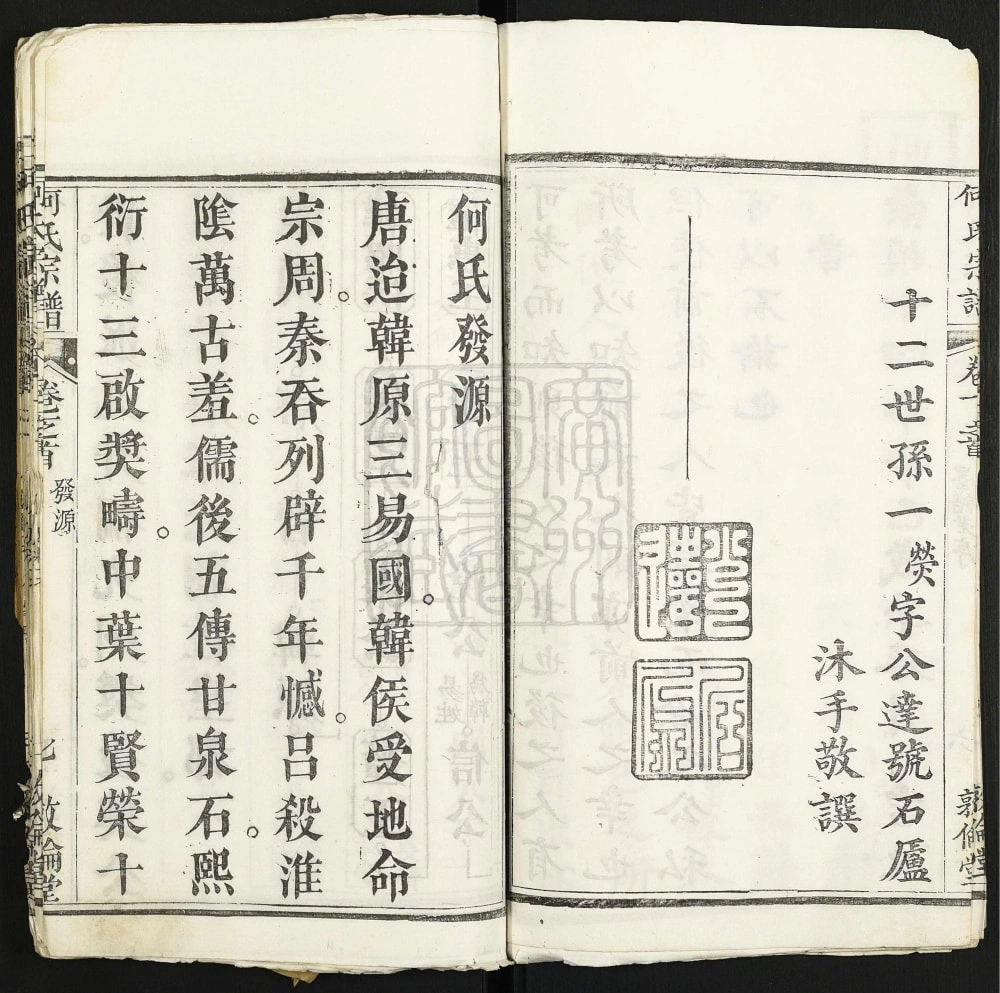 何氏宗譜
卷之首
敦倫堂
十二世孫一熒字公達號石廬
沐手敬譔
何氏發源
唐迨韓原三易國。韓侯受地命
宗周。秦吞列辟千年憾。呂殺淮
陰萬古羞。儒後五傳甘泉石。熙
衍十三啟奬疇。中葉十賢榮十
何氏宗譜
卷之首
發源
七
敦倫堂